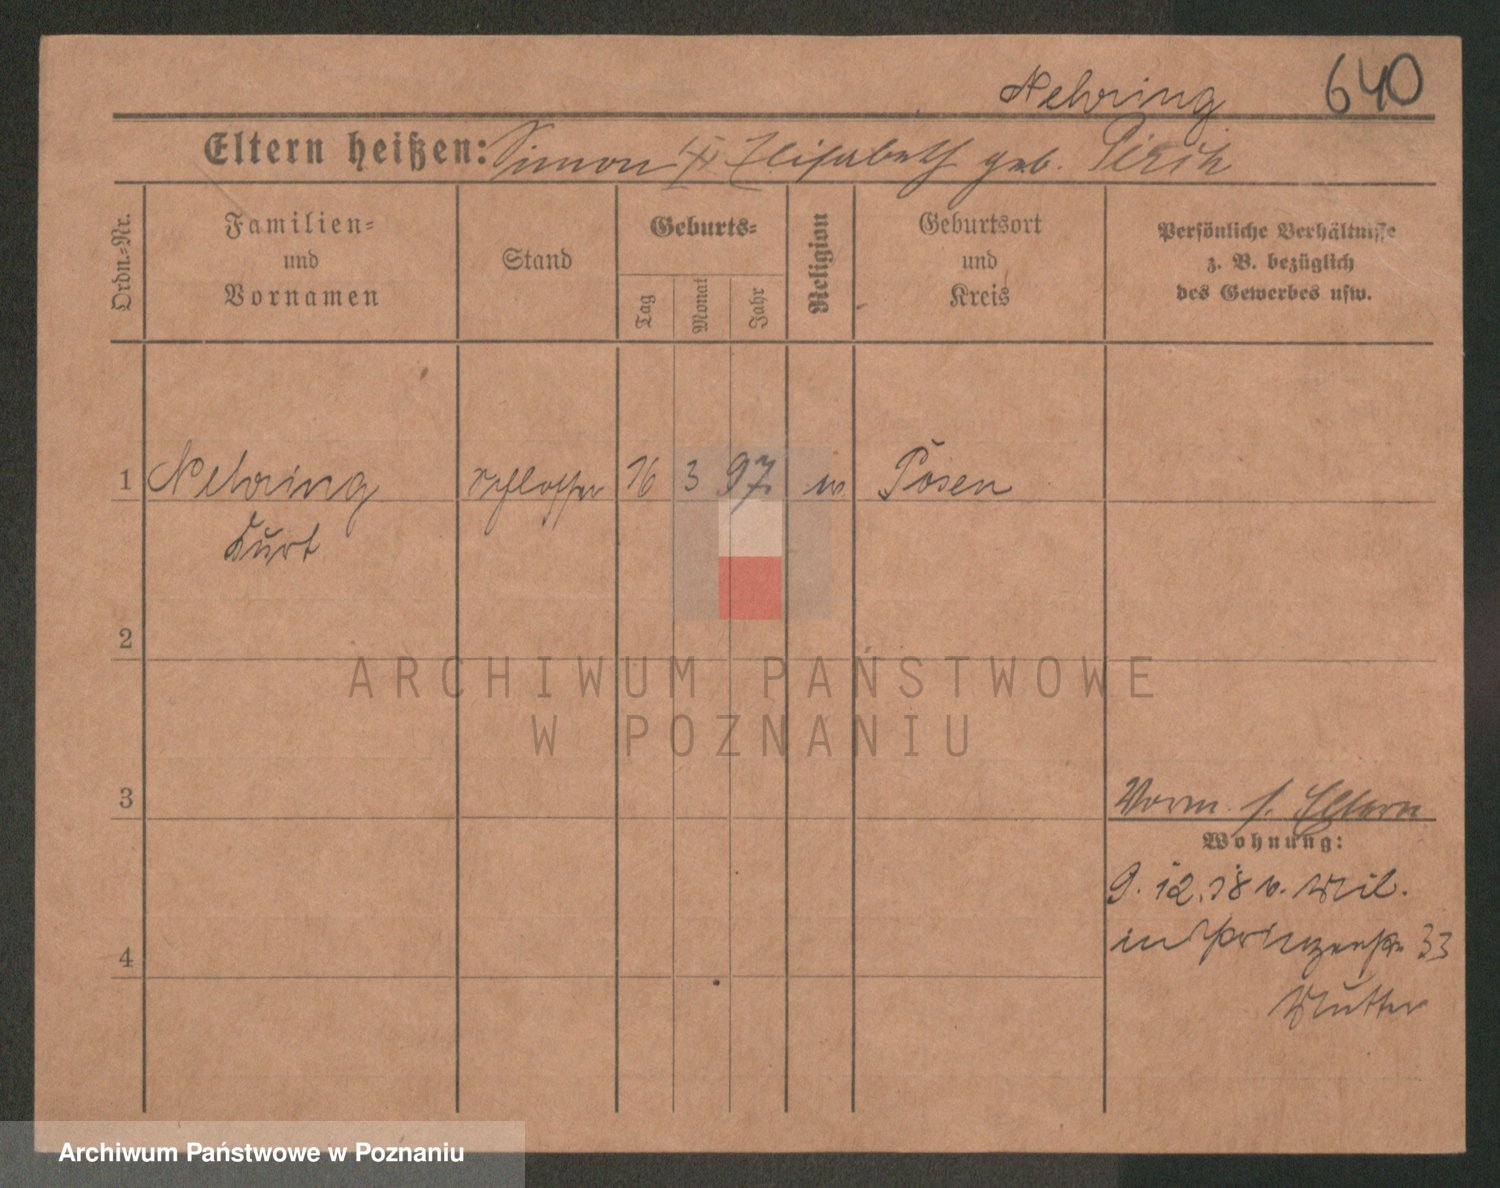 Nehring 640
Eltern heißen: Simon Elisabeth geb.
Ordn.-Nr.
Familien-
und
Vornamen
Stand
Geburts-
Tag
Monat
Jahr
Religion
Geburtsort
und
Kreis
Persönliche Verhältnisse
z. B. bezüglich
des Gewerbes usw.
1 Nehring Schlosser 16 3 97 Posen
Kurt
2
ARCHIWUM PAŃSTWOWE
W POZNANIU
3
Vorm. s. Eltern
Wohnung:
9. 12. 18 v. Mil.
in Prinzenstr 33
4
Mutter
Archiwum Państwowe w Poznaniu